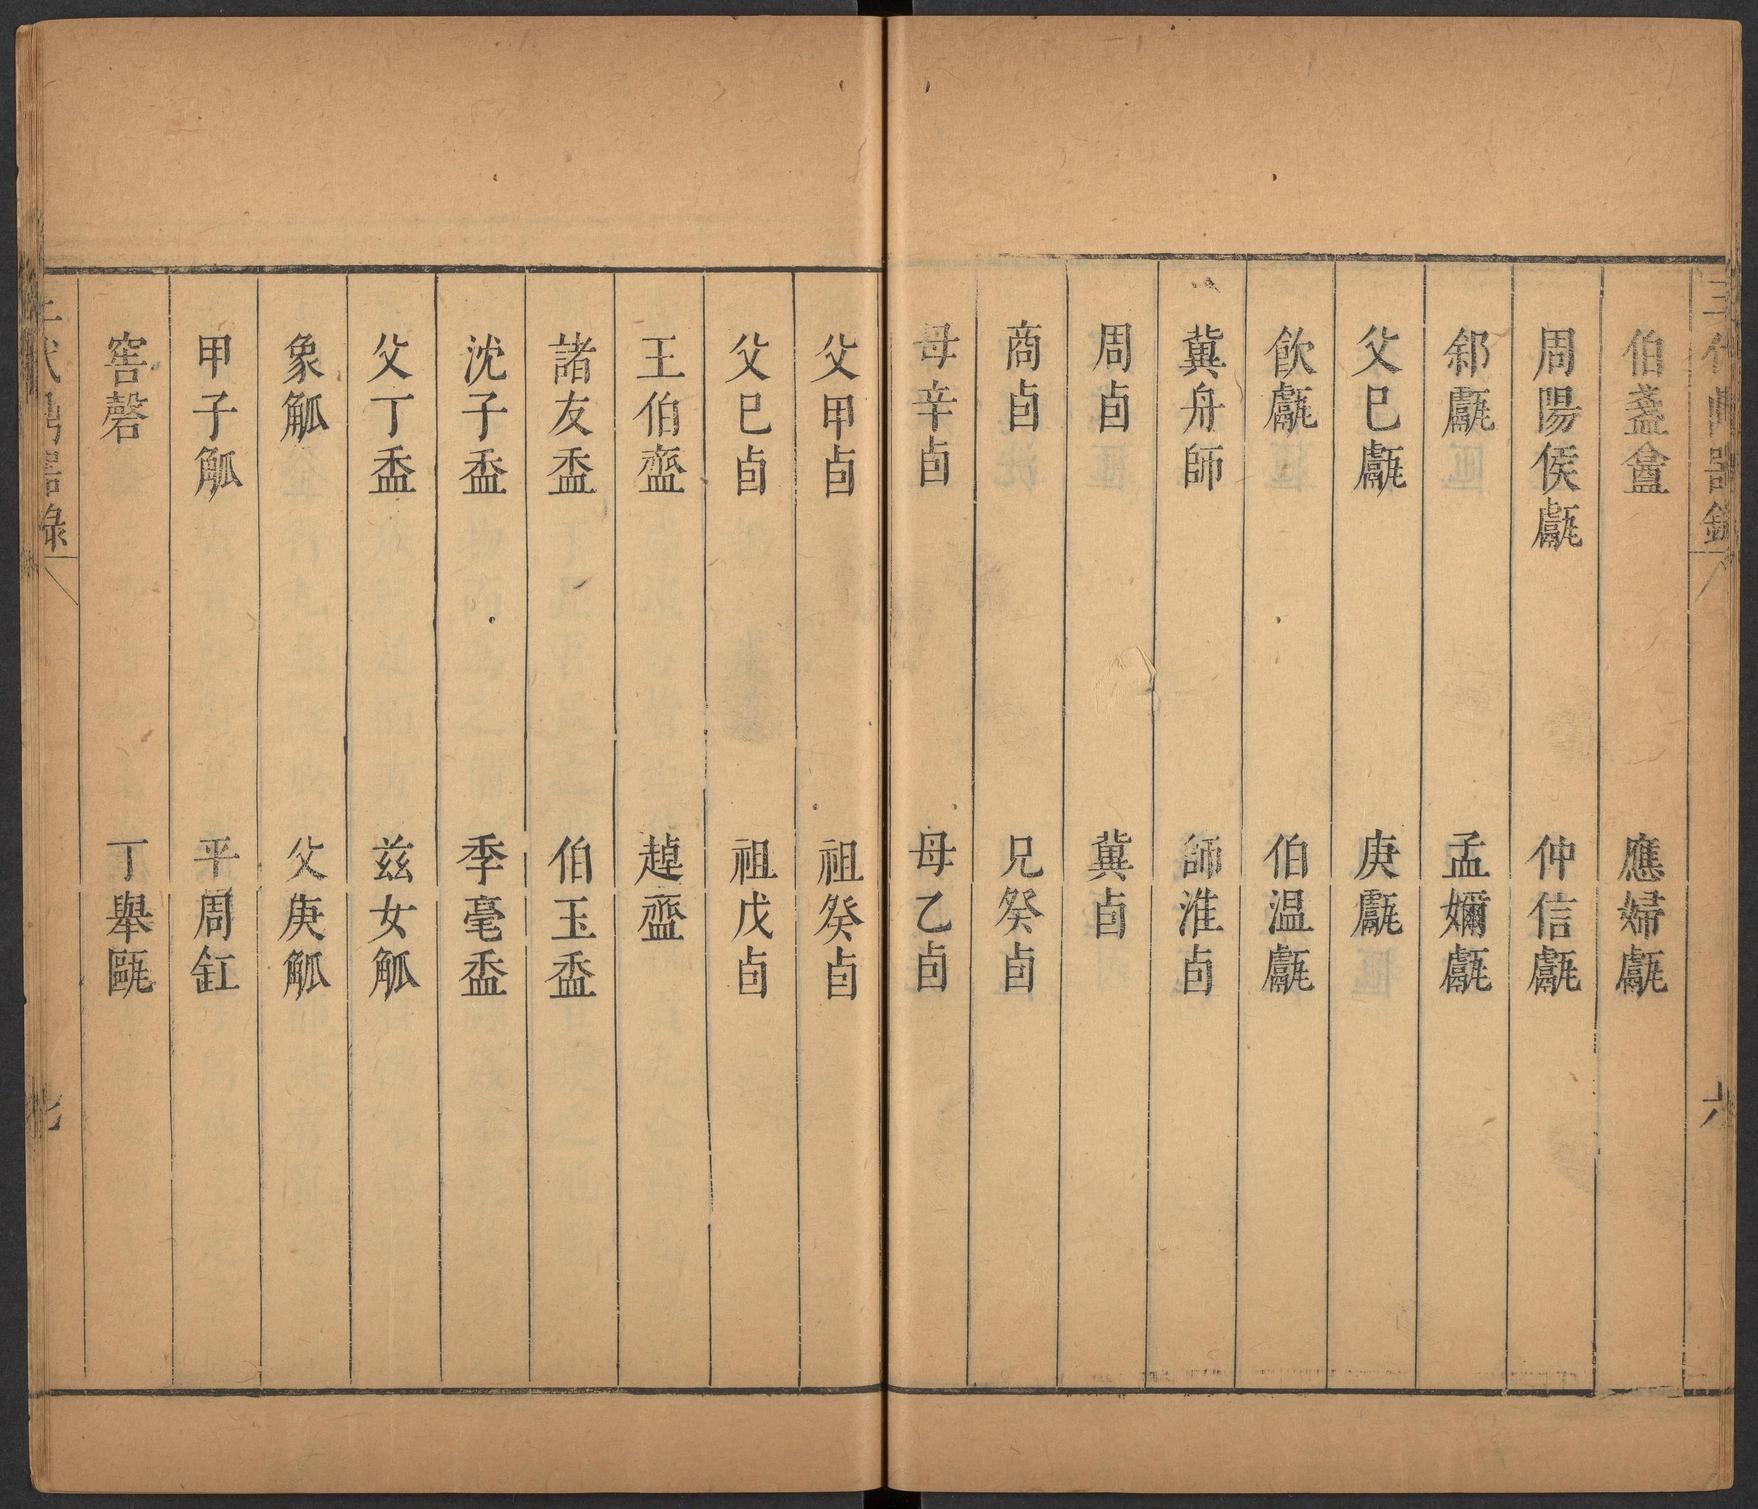 伯盞盫　應婦甗
周陽侯甗　仲信甗
邾甗　孟嬭甗
父巳甗　庚甗
飲甗　伯溫甗
冀舟師　師淮卣
周卣　冀卣
商卣　兄癸卣
母辛卣　母乙卣
父甲卣　祖癸卣
父巳卣　祖戊卣
王伯齍　趠齍
諸友盉　伯玉盉
沈子盉　季毫盉
父丁盉　兹女觚
象觚　父庚觚
甲子觚　平周缸
窖磬　丁舉甌